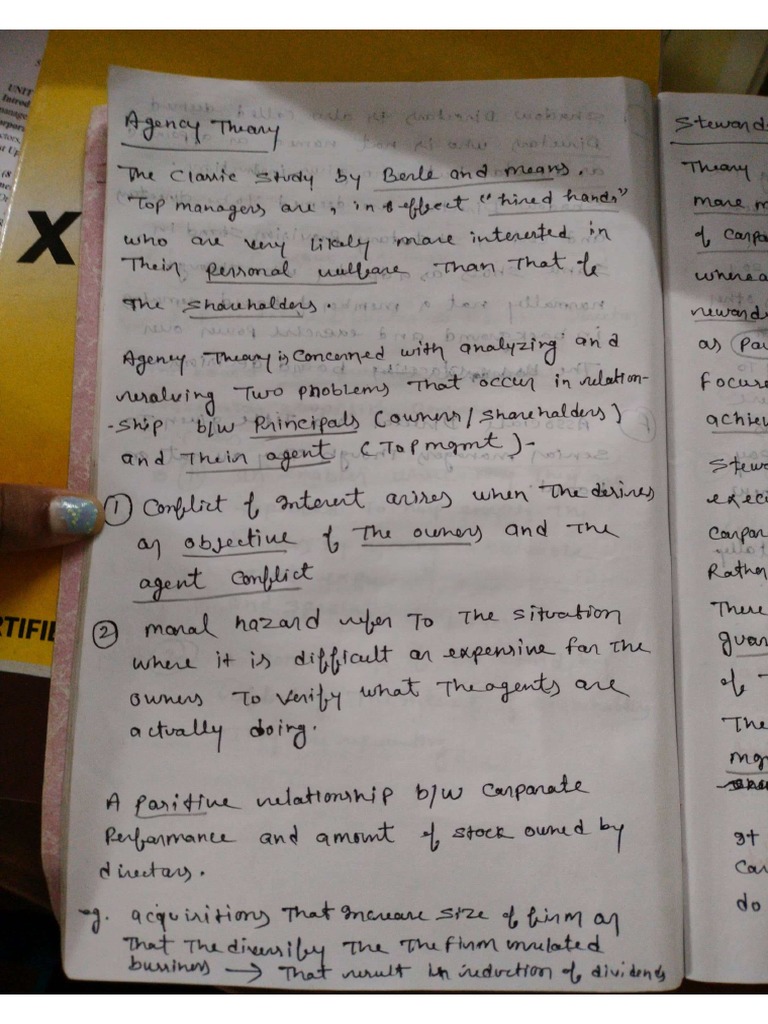 UNIT
X
RTIFI
Agency Theory
The Classic Study by Berle and means.
Top managers are, in effect "hired hands"
who are very likely more interested in
Their personal welfare Than That of
The shareholders.
Agency Theory is concerned with analyzing and
resolving Two problems That occur in relation-
-ship b/w Principals (owners/shareholders)
and Their agent (Top mgmt)-
① Conflict of Interest arises when The desires
or objective of The owners and The
agent Conflict
② moral hazard refer To The situation
where it is difficult or expensive for The
owners To verify what The agents are
actually doing.
A positive relationship b/w Corporate
Performance and amount of stock owned by
directors.
-g. acquisitions That Increase size of firm or
That The diversify The The firm unrelated
bussiness → That result in reduction of dividends
Steward
Theory
more m
of Corpo
where a
reward
as
focuse
achiev
Stewa
execu
Corpor
Rather
There
guar
of T
The
mg
It
Cor
do